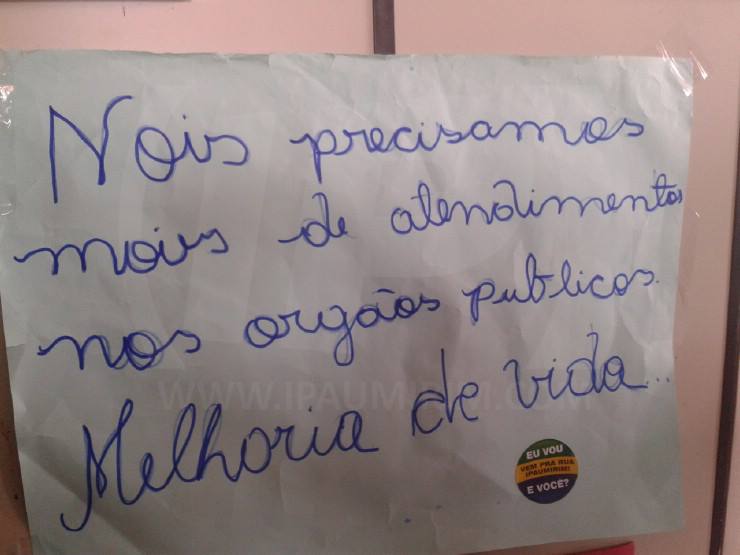 Nois precisamos
mais de atendimentos
nos orgãos publicos.
Melhoria de vida...
WWW.IPAUMIRIM.COM
EU VOU
VEM PRA RUA
IPAUMIRIM!
E VOCÊ?